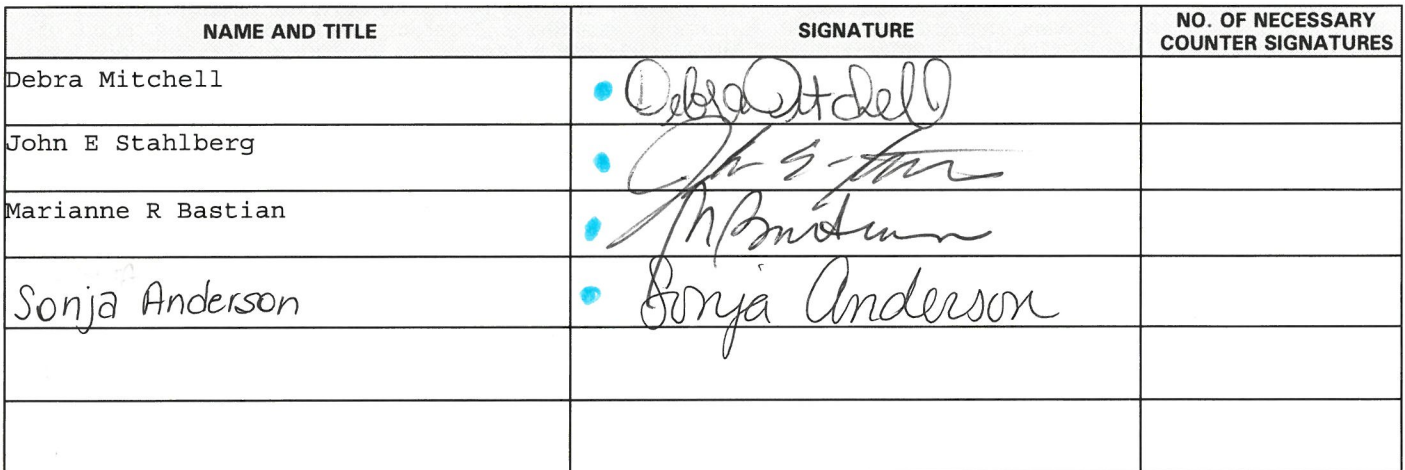 NAME AND TITLE SIGNATURE NO. OF NECESSARY
COUNTER SIGNATURES
Debra Mitchell Debra Mitchell
John E Stahlberg
Marianne R Bastian M Bastian
Sonja Anderson Sonja Anderson